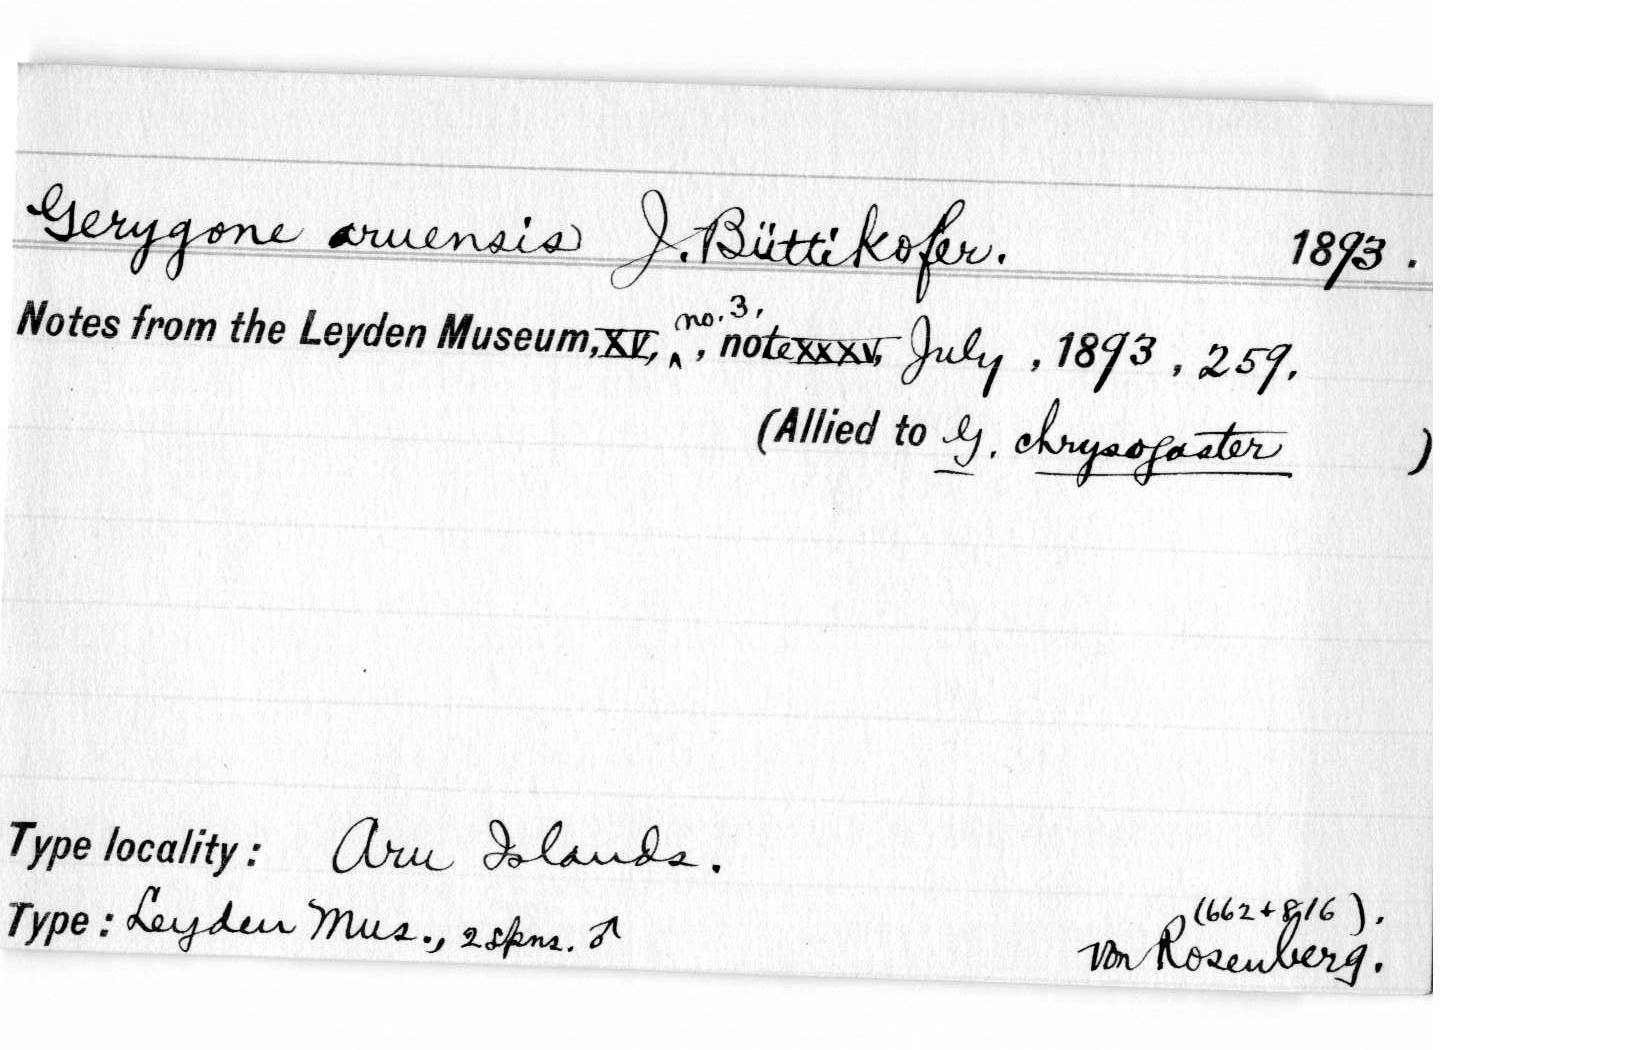 Gerygone aruensis J. Büttikofer. 1893.
Notes from the Leyden Museum, XV, no. 3, , note xxxv, July , 1893 , 259.
(Allied to G. chrysogaster )
Type locality: Aru Islands.
(662 + 816).
Type: Leyden Mus., 2 spns. ♂ von Rosenberg.